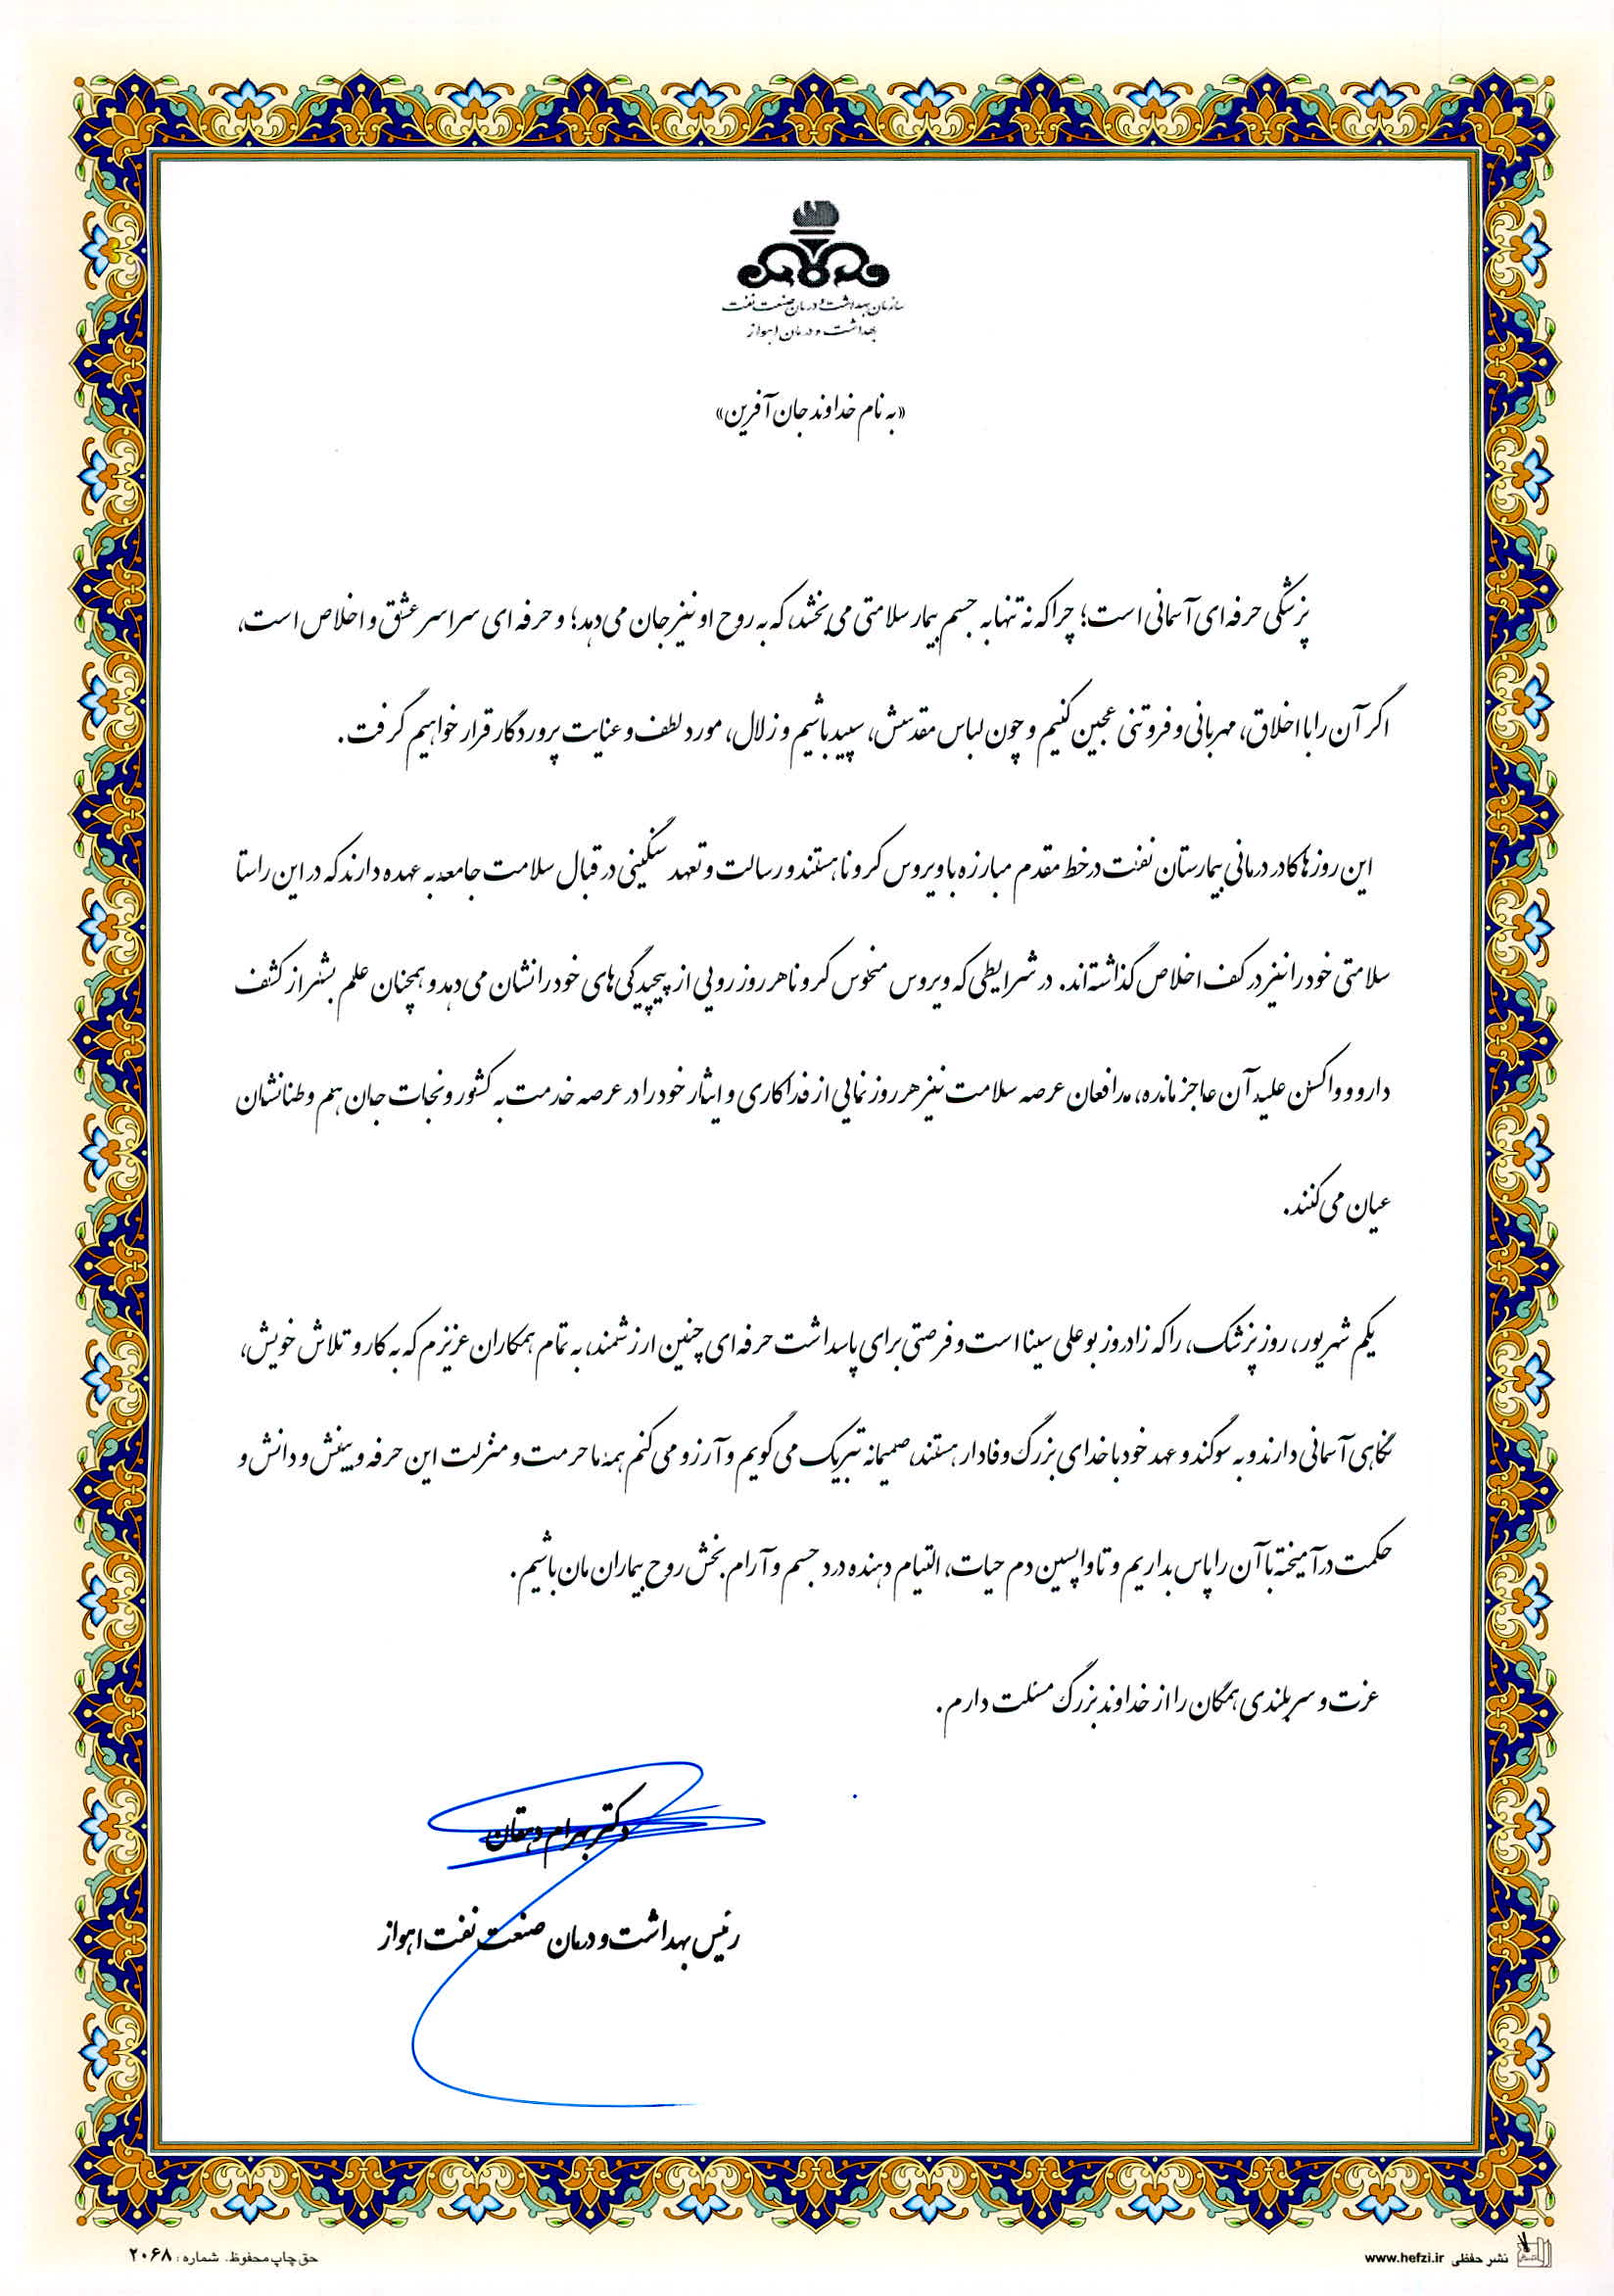 سازمان بهداشت و درمان صنعت نفت
بهداشت و درمان اهواز
«به نام خداوند جان آفرین»
پزشکی حرفه ای آسمانی است؛ چرا که نه تنها به جسم بیمار سلامتی می بخشد، که به روح او نیز جان می دهد؛ و حرفه ای سراسر عشق و اخلاص است،
اگر آن را با اخلاق، مهربانی و فروتنی عجین کنیم و چون لباس مقدسش، سپید باشیم و زلال، مورد لطف و عنایت پروردگار قرار خواهیم گرفت.
این روزها کادر درمانی بیمارستان نفت در خط مقدم مبارزه با ویروس کرونا هستند و رسالت و تعهد سنگینی در قبال سلامت جامعه به عهده دارند که در این راستا
سلامتی خود را نیز در کف اخلاص گذاشته اند. در شرایطی که ویروس منحوس کرونا هر روز رویی از پیچیدگی های خود را نشان می دهد و همچنان علم بشر از کشف
دارو و واکسن علیه آن عاجز مانده، مدافعان عرصه سلامت نیز هر روز نمایی از فداکاری و ایثار خود را در عرصه خدمت به کشور و نجات جان هم وطنانشان
عیان می کنند.
یکم شهریور، روز پزشک، را که زادروز بوعلی سینا است و فرصتی برای پاسداشت حرفه ای چنین ارزشمند، به تمام همکاران عزیزم که به کار و تلاش خویش،
نگاهی آسمانی دارند و به سوگند و عهد خود با خدای بزرگ وفادار هستند، صمیمانه تبریک می گویم و آرزو می کنم همه ما حرمت و منزلت این حرفه و بینش و دانش و
حکمت درآمیخته با آن را پاس بداریم و تا واپسین دم حیات، التیام دهنده درد جسم و آرام بخش روح بیماران مان باشیم.
عزت و سربلندی همگان را از خداوند بزرگ مسئلت دارم.
دکتر بهرام دهقان
رئیس بهداشت و درمان صنعت نفت اهواز
حق چاپ محفوظ. شماره: ۲۰۶۸
نشر حفظی www.hefzi.ir